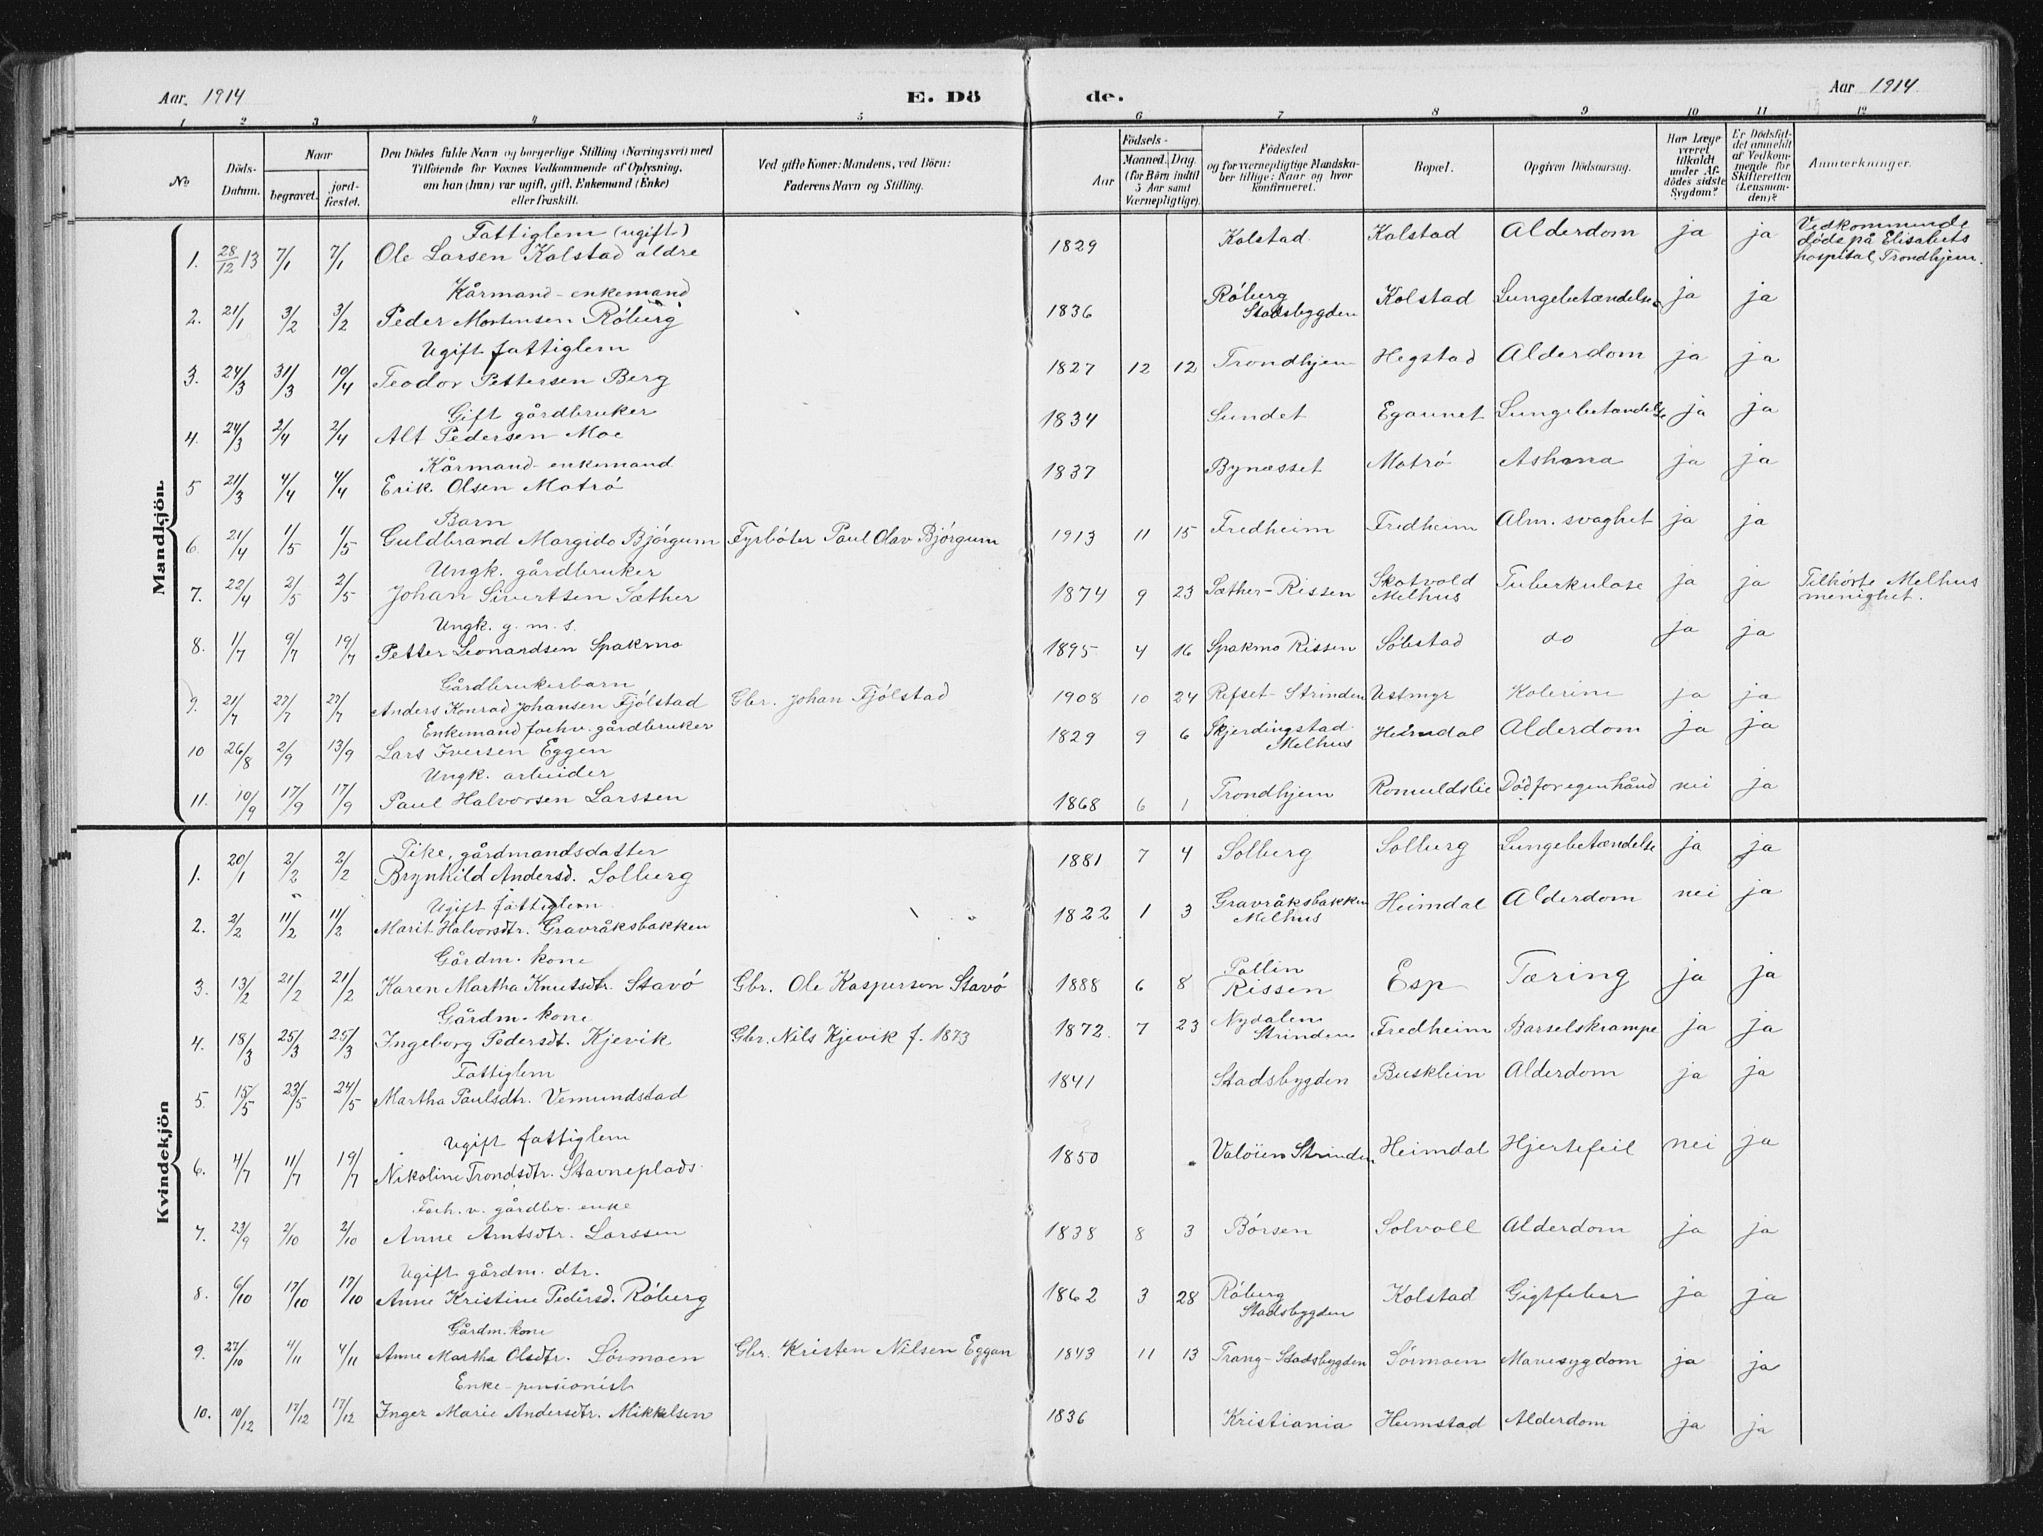 Aar. 1914 E. Dö de. Aar 1914
1 2 3 4 5 6 7 8 9 10 11 12
No. Döds-Datum. Naar begravet. jordfæstet. Den Dödes fulde Navn og borgerlige Stilling (Næringsvei) med Tilföiende for Voxnes Vedkommende af Oplysning, om han (hun) var ugift, gift, Enkemand (Enke) eller fraskilt. Ved gifte Koner: Mandens, ved Börn: Faderens Navn og Stilling. Födsels- Aar Maaned. Dag. (for Börn indtil 5 Aar samt Værnepligtige). Födested og for værnepligtige Mandskaber tillige: Naar og hvor konfirmeret. Bopæl. Opgiven Dödsaarsag. Har Læge været tilkaldt under Afdödes sidste Sygdom? Er Dödsfaldet anmeldt af Vedkommende for Skifteretten (Lensmanden)? Anmærkninger.
Mandkjön
Fattiglem (ugift)
1. 28/12 13 7/1 7/1 Ole Larsen Kolstad aldre 1829 Kolstad Kolstad Alderdom ja ja Vedkommende døde på Elisabets hospital, Trondhjem.
Kårmand - enkemand
2. 21/1 3/2 3/2 Peder Mortensen Røberg 1836 Røberg Stadsbygden Kolstad Lungebetændelse ja ja
Ugift fattiglem
3. 24/3 31/3 10/4 Teodor Pettersen Berg 1827 12 12 Trondhjem Hegstad Alderdom ja ja
Gift gårdbruker
4. 24/3 2/4 2/4 Alt Pedersen Moe 1834 Sundet Egaunet Lungebetændelse ja ja
Kårmand - enkemand
5 21/3 4/4 4/4 Erik Olsen Matrø 1837 Bynæsset Matrø Ashma ja ja
Barn
6. 21/4 1/5 1/5 Guldbrand Margido Bjørgum Fyrbøter Paul Olav Bjørgum 1913 11 15 Fredheim Fredheim Alm. svaghet ja ja
Ungk. gårdbruker
7. 22/4 2/5 2/5 Johan Sivertsen Sæther 1874 9 23 Sæther - Rissen Skotvold Melhus Tuberkulose ja ja Tilhørte Melhus menighet.
Ungk. g. m. s.
8. 1/7 9/7 19/7 Petter Leonardsen Spakmo 1895 4 16 Spakmo Rissen Søbstad do ja ja
Gårdbrukerbarn
9. 21/7 27/7 27/7 Anders Konrad Johansen Fjølstad Gbr. Johan Fjølstad 1908 10 24 Refset - Strinden Ustmyr Kolerine ja ja
Enkemand forhv. gårdbruker
10 26/8 2/9 13/9 Lars Iversen Eggen 1829 9 6 Skjerdingstad Melhus Heimdal Alderdom ja ja
Ungk. arbeider
11. 10/9 17/9 17/9 Paul Halvorsen Larssen 1868 6 1 Trondhjem Romuldslie Død for egen hånd nei ja
Kvindekjön
Pike, gårdmandsdatter
1. 20/1 2/2 2/2 Brynhild Andersd. Solberg 1881 7 4 Solberg Solberg Lungebetændelse ja ja
Ugift fattiglem
2. 2/2 11/2 11/2 Marit Halvorsdtr. Gravråksbakken 1822 1 3 Gravråksbakken Melhus Heimdal Alderdom nei ja
Gårdm. kone
3. 13/2 21/2 21/2 Karen Martha Knutsdtr. Stavø Gbr. Ole Kasperson Stavø 1888 6 8 Pallin Rissen Esp Tæring ja ja
Gårdm. kone
4. 18/3 25/3 25/3 Ingeborg Pedersdt. Kjevik Gbr. Nils Kjevik f. 1873 1872. 7 23 Nydalen Strinden Fredheim Barselskrampe ja ja
Fattiglem
5. 15/5 23/5 24/5 Martha Paulsdtr. Vemundstad 1841 Stadsbygden Busklein Alderdom ja ja
Ugift fattiglem
6. 4/7 11/7 19/7 Nikoline Trondsdtr. Stavneplads 1850 Valøien Strinden Heimdal Hjertefeil nei ja
Forh. v. gårdbr. enke
7. 23/9 2/10 2/10 Anne Arntsdtr. Larssen 1838 8 3 Børsen Solvoll Alderdom ja ja
Ugift gårdm. dtr.
8. 6/10 17/10 17/10 Anne Kristine Pedersd. Røberg 1862 3 28 Røberg Stadsbygden Kolstad Gigtfeber ja ja
Gårdm. kone
9. 27/10 4/11 4/11 Anne Martha Olsdtr. Sørmoen Gbr. Kristen Nilsen Eggan 1843 11 13 Trang - Stadsbygden Sørmoen Mavesygdom ja ja
Enke - pensionist
10. 10/12 17/12 17/12 Inger Marie Andersdtr. Mikkelsen 1836 Kristiania Heimstad Alderdom ja ja